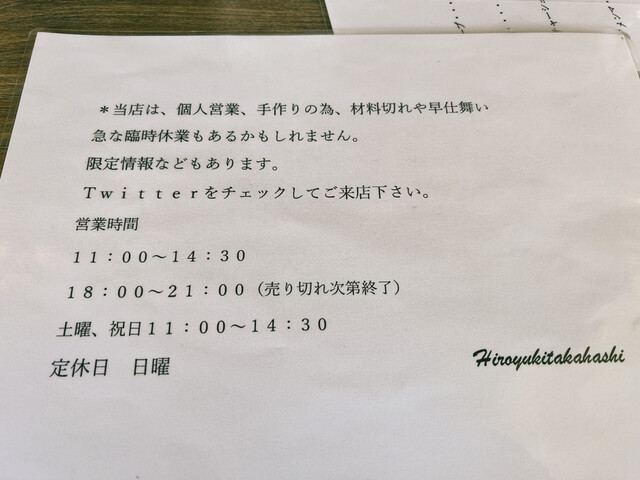 ＊当店は、個人営業、手作りの為、材料切れや早仕舞い
急な臨時休業もあるかもしれません。
限定情報などもあります。
Ｔｗｉｔｔｅｒをチェックしてご来店下さい。
営業時間
１１：００～１４：３０
１８：００～２１：００（売り切れ次第終了）
土曜、祝日１１：００～１４：３０
定休日　日曜
Hiroyukitakahashi